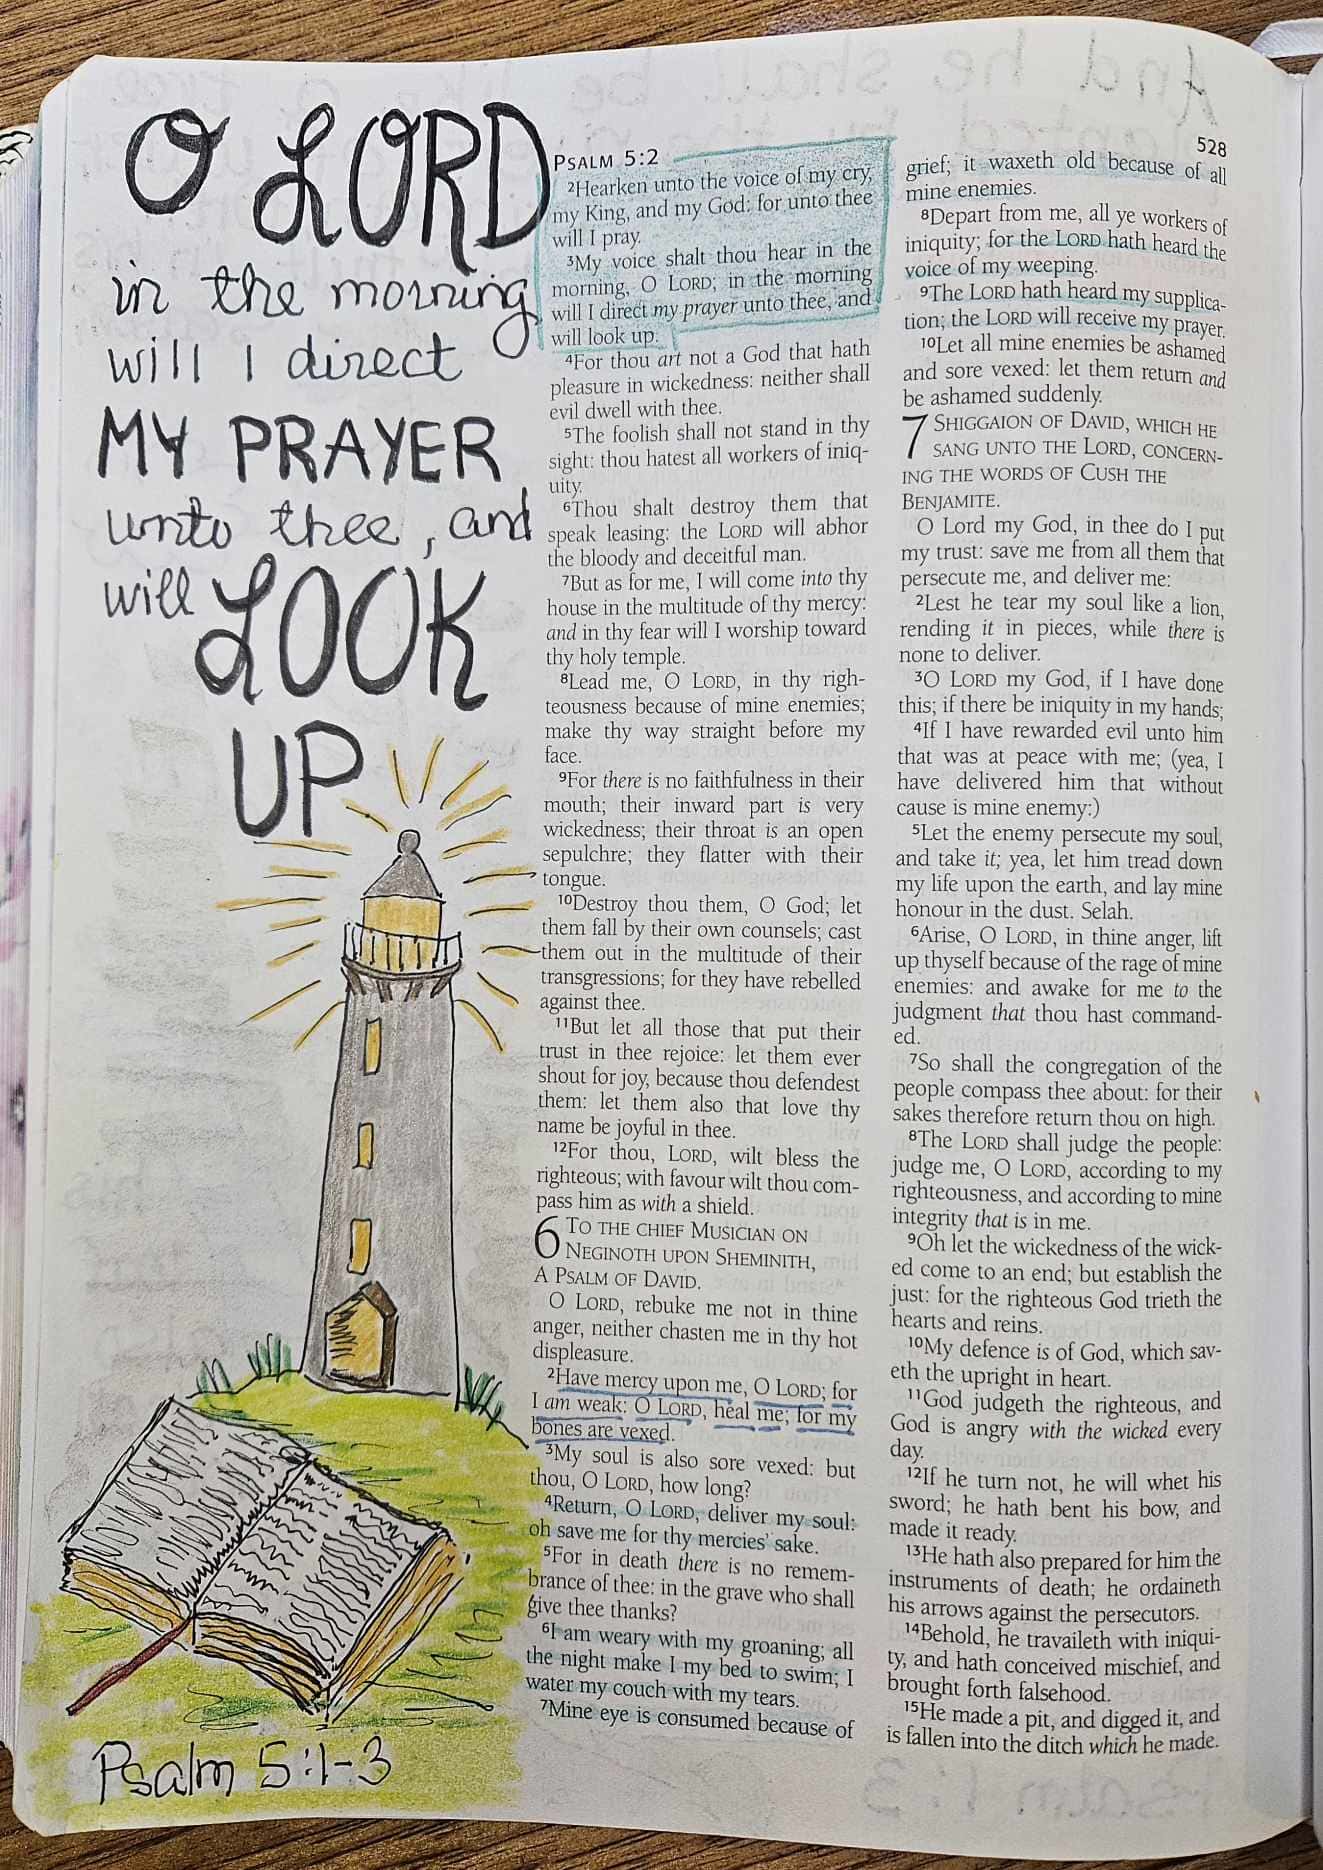 O LORD
in the morning
will I direct
MY PRAYER
unto thee, and
will LOOK
UP
Psalm 5:1-3
PSALM 5:2
2Hearken unto the voice of my cry,
my King, and my God: for unto thee
will I pray.
3My voice shalt thou hear in the
morning, O LORD; in the morning
will I direct my prayer unto thee, and
will look up.
4For thou art not a God that hath
pleasure in wickedness: neither shall
evil dwell with thee.
5The foolish shall not stand in thy
sight: thou hatest all workers of iniq-
uity.
6Thou shalt destroy them that
speak leasing: the LORD will abhor
the bloody and deceitful man.
7But as for me, I will come into thy
house in the multitude of thy mercy:
and in thy fear will I worship toward
thy holy temple.
8Lead me, O LORD, in thy righ-
teousness because of mine enemies;
make thy way straight before my
face.
9For there is no faithfulness in their
mouth; their inward part is very
wickedness; their throat is an open
sepulchre; they flatter with their
tongue.
10Destroy thou them, O God; let
them fall by their own counsels; cast
them out in the multitude of their
transgressions; for they have rebelled
against thee.
11But let all those that put their
trust in thee rejoice: let them ever
shout for joy, because thou defendest
them: let them also that love thy
name be joyful in thee.
12For thou, LORD, wilt bless the
righteous; with favour wilt thou com-
pass him as with a shield.
6 TO THE CHIEF MUSICIAN ON
NEGINOTH UPON SHEMINITH,
A PSALM OF DAVID.
O LORD, rebuke me not in thine
anger, neither chasten me in thy hot
displeasure.
2Have mercy upon me, O LORD; for
I am weak: O LORD, heal me; for my
bones are vexed.
3My soul is also sore vexed: but
thou, O LORD, how long?
4Return, O LORD, deliver my soul:
oh save me for thy mercies' sake.
5For in death there is no remem-
brance of thee: in the grave who shall
give thee thanks?
6I am weary with my groaning; all
the night make I my bed to swim; I
water my couch with my tears.
7Mine eye is consumed because of
528
grief; it waxeth old because of all
mine enemies.
8Depart from me, all ye workers of
iniquity; for the LORD hath heard the
voice of my weeping.
9The LORD hath heard my supplica-
tion; the LORD will receive my prayer.
10Let all mine enemies be ashamed
and sore vexed: let them return and
be ashamed suddenly.
7 SHIGGAION OF DAVID, WHICH HE
SANG UNTO THE LORD, CONCERN-
ING THE WORDS OF CUSH THE
BENJAMITE.
O Lord my God, in thee do I put
my trust: save me from all them that
persecute me, and deliver me:
2Lest he tear my soul like a lion,
rending it in pieces, while there is
none to deliver.
3O LORD my God, if I have done
this; if there be iniquity in my hands;
4If I have rewarded evil unto him
that was at peace with me; (yea, I
have delivered him that without
cause is mine enemy:)
5Let the enemy persecute my soul,
and take it; yea, let him tread down
my life upon the earth, and lay mine
honour in the dust. Selah.
6Arise, O LORD, in thine anger, lift
up thyself because of the rage of mine
enemies: and awake for me to the
judgment that thou hast command-
ed.
7So shall the congregation of the
people compass thee about: for their
sakes therefore return thou on high.
8The LORD shall judge the people:
judge me, O LORD, according to my
righteousness, and according to mine
integrity that is in me.
9Oh let the wickedness of the wick-
ed come to an end; but establish the
just: for the righteous God trieth the
hearts and reins.
10My defence is of God, which sav-
eth the upright in heart.
11God judgeth the righteous, and
God is angry with the wicked every
day.
12If he turn not, he will whet his
sword; he hath bent his bow, and
made it ready.
13He hath also prepared for him the
instruments of death; he ordaineth
his arrows against the persecutors.
14Behold, he travaileth with iniqui-
ty, and hath conceived mischief, and
brought forth falsehood.
15He made a pit, and digged it, and
is fallen into the ditch which he made.